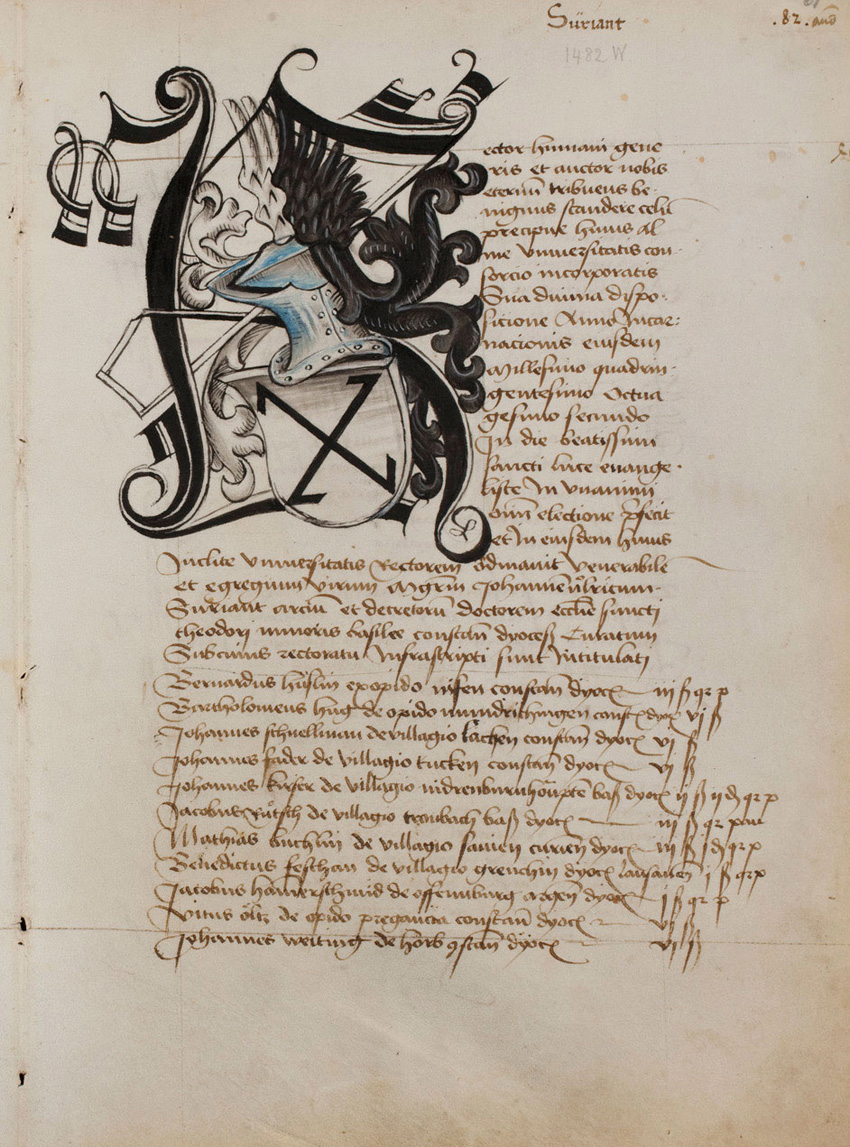 Süriant
.82.
1482 W.
Rector humani gene
ris et auctor nobis
eternū tribuens be-
nignus scandere celū
precipue huius al
me vniuersitatis con-
sorcio incorporatis
Sua diuina dispo-
sicione Anno Incar-
nacionis eiusdem
Millesimo quadrin-
gentesimo Octua
gesimo secundo
In die beatissimi
sancti luce euange-
liste In vnanimi
oīm electione p̄fecit
et In eiusdem huius
Inclite vniuersitatis Rectorem ordinauit venerabilē
et egregium virum Mgrm̄ Johannē vlricum
Süriant arciū et decretorū doctorem eccl̄ie sancti
theodori minoris basilee constan̄ dyoces̄ Curatum
Sub cuius rectoratu Infrascripti sunt Intitulati
Bernardus hüslin ex opido nifen constan̄ dyoc̄ iij ß
Bartholomeus hug de opido mundrichingen const̄ dyoc̄ vj ß
Johannes schnellman de villagio lachen constan̄ dyoc̄ vj ß
Johannes fader de villagio tucken constan̄ dyoc̄ vj ß
Johannes kyfer de villagio nidrenburnhoupten bas̄ dyoc̄ ij ß ij d
Jacobus Rütsch de villagio trenbach bas̄ dyoc̄ iij ß
Mathias buchlin de villagio sanien curien̄ dyoc̄ iij ß j d
Benedictus feschan de villagio grenchin dyoc̄ lausanen̄ j ß
Jacobus hamerschmid de offenburg argen̄ dyoc̄ j ß
vitus öltz de opido pregancia constan̄ dyoc̄ vj ß
Johannes weiting de horb 9stan̄ dyoc̄ vj ß